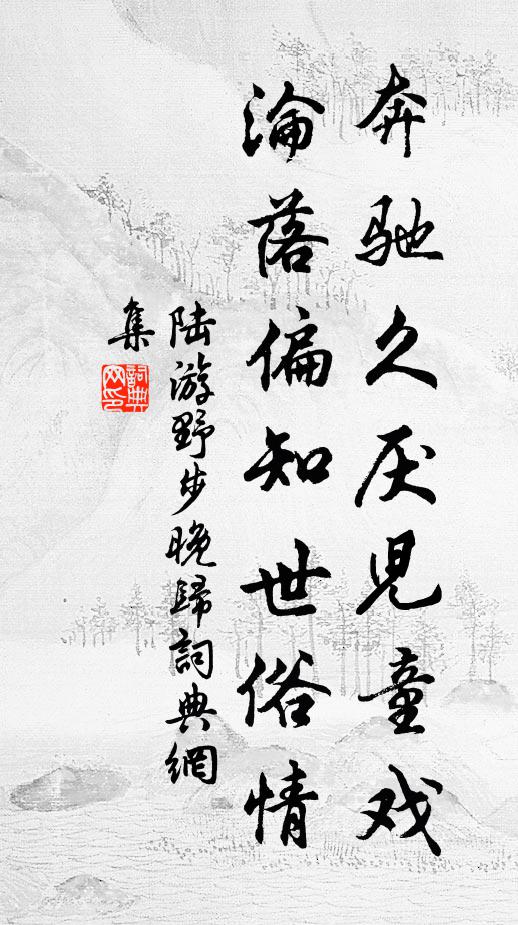 奔驰久厌児童戏
沦落偏知世俗情
陆游野步晚歸詞典網
集
詞典網印